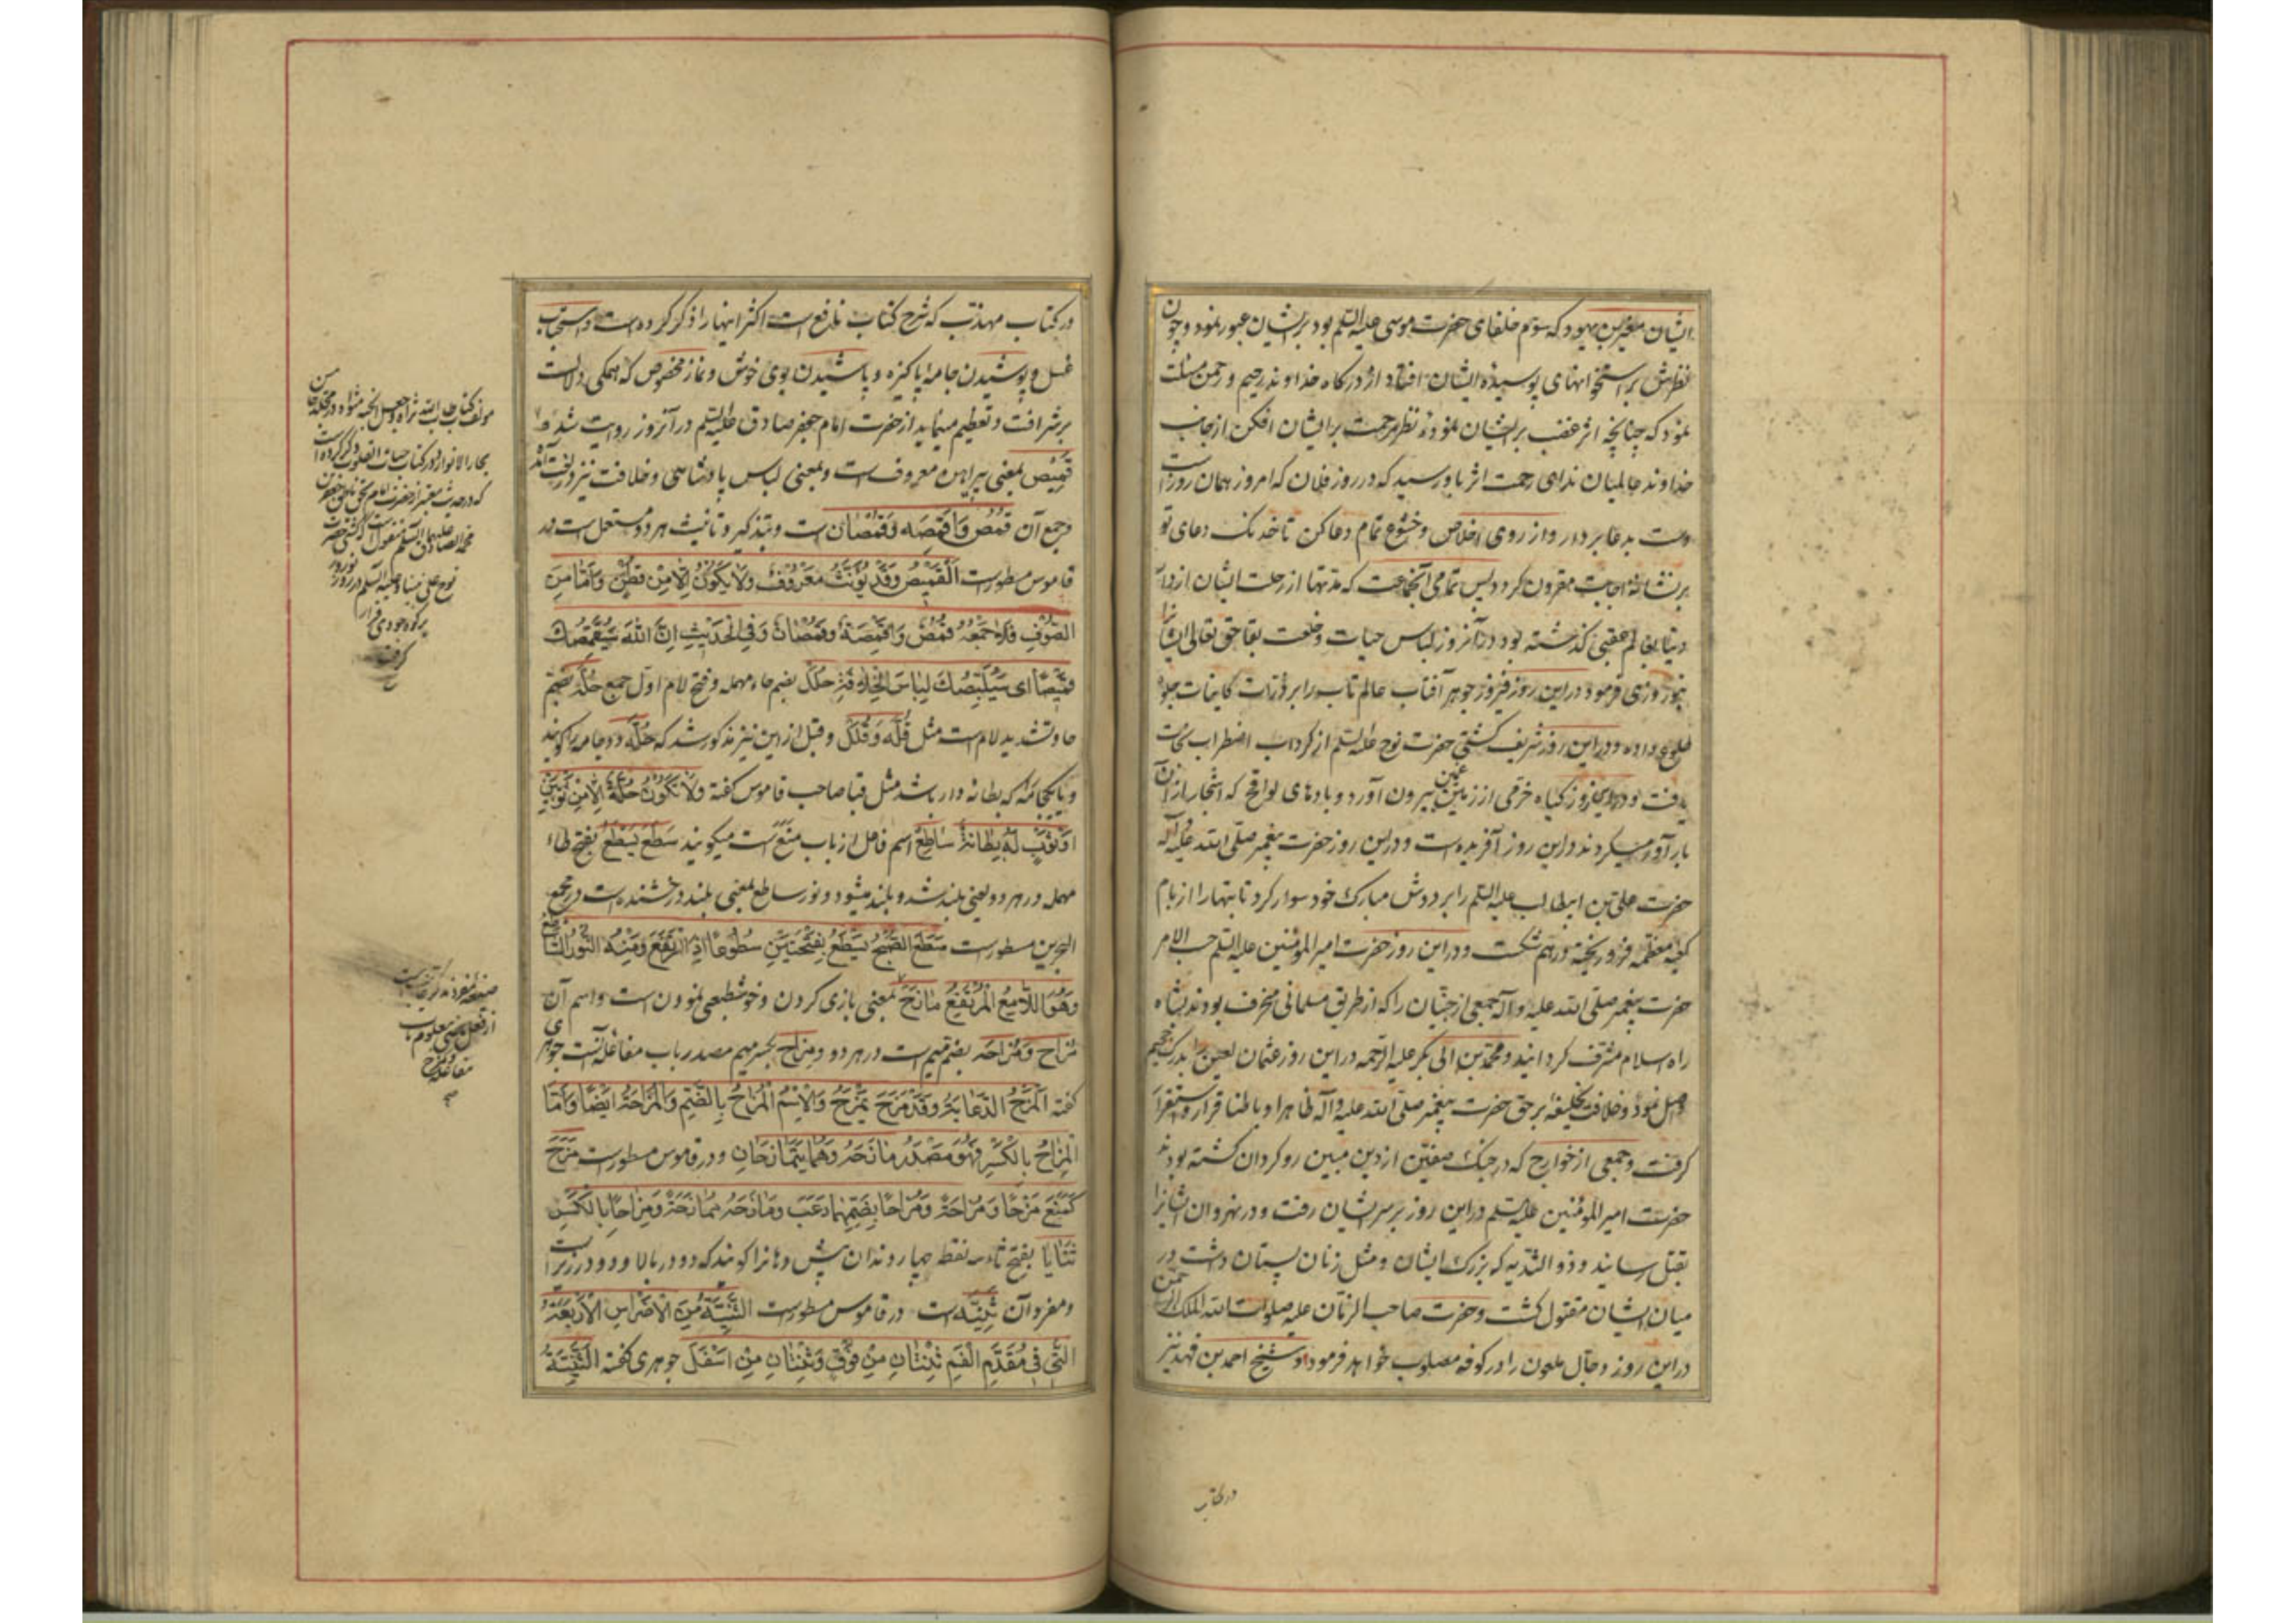 ایشان پیغمبر یهود که سوم خلفای حضرت موسی علیه السلم بود بر ایشان عبور نمود و چون
نظرش بر استخوانهای پوسیده ایشان افتاد از درگاه خداوند رحیم و رحمن مسئلت
نمود که چنانچه اثر غضب بر ایشان نموده نظر مرحمت بر ایشان افکن از جانب
خداوند عالمیان ندای رحمت اثر باو رسید که در روز فلان که امروز همان روز است
دست بدعا بردار و از روی اخلاص و خشوع تمام دعا کن تا خدنک دعای تو
بر نشانه اجابت مقرون کردد پس تمامی آنجماعت که مدتها از رحلت ایشان از دار
دنیا بعالم عقبی کذشته بود در آنروز لباس حیات و خلعت بقا حق تعالی ایشانرا
روزی فرمود در این روز فیروز جوهر آفتاب عالم تاب را بر ذرات کاینات جلوه
طلوع داده و در این روز شریف کشتی حضرت نوح علیه السلم از کرداب اضطراب نجات
یافت و در این روز کیاه خرمی از زمین بیرون آورد و بادهای لواقح که اشجار از آن
بارآور میکردند در این روز آفریده است و در این روز حضرت پیغمبر صلی الله علیه و آله
حضرت علی بن ابیطالب علیه السلم را بر دوش مبارک خود سوار کرد تا بتها را از بام
کعبه معظمه فرو ریخته در هم شکست و در این روز حضرت امیر المومنین علیه السلم حسب الامر
حضرت پیغمبر صلی الله علیه و آله جمعی از جنیان را که از طریق مسلمانی منحرف بودند بشاه
راه اسلام مشرف کردانید و محمد بن ابی بکر علیه الرحمه در این روز عثمان لعین را بدرک جحیم
واصل نمود و خلافت بخلیفه بر حق حضرت پیغمبر صلی الله علیه و آله ظاهرا و باطنا قرار و استقرار
کرفت و جمعی از خوارج که در جنک صفین از دین مبین رو کردان کشته بودند
حضرت امیر المؤمنین علیه السلم در این روز بر سر ایشان رفت و در نهروان ایشانرا
بقتل رسانید و ذو الثدیه که بزرک ایشان و مثل زنان پستان داشت در
میان ایشان مقتول کشت و حضرت صاحب الزمان علیه صلوات الله الملک الرحمن
در این روز دجال ملعون را در کوفه مصلوب خواهد فرمود و شیخ احمد بن فهد نیز
در کتاب
در کتاب مهذب که شرح کتاب نافع است اکثر اینها را ذکر کرده است و استحباب
غسل و پوشیدن جامه پاکیزه و پاشیدن بوی خوش و نماز مخصوص که همکی دلالت
بر شرافت و تعظیم مینماید از حضرت امام جعفر صادق علیه السلم در آنروز روایت شده
قمیص بمعنی پیراهن معروف است و بمعنی لباس پادشاهی و خلافت نیز در لغت آمده
و جمع آن قمص واقمصه وقمصان است و بتذکیر و تانیث هر دو مستعمل است در
قاموس مسطور است القمیص وقد یؤنث معروف ولا یکون الا من قطن واما من
الصوف فلا جمعه قمص واقمصة وقمصان وفی الحدیث ان الله سیقمصک
قمیصا ای سیلبسک لباس الخلافة حلل بضم حاء مهمله و فتح لام اول جمع حله بضم
حا و تشدید لام است مثل قله وقلل و قبل از این نیز مذکور شد که حله دو جامه را کویند
و یا یکجامه که بطانه دار باشد مثل قبا صاحب قاموس کفته ولا تکون حلة الا من ثوبین
او ثوب له بطانة ساطع اسم فاعل از باب منع است میکویند سطع یسطع بفتح طاء
مهمله در هر دو یعنی بلند شد و بلند میشود و نور ساطع بمعنی بلند درخشنده است در مجمع
البحرین مسطور است سطع الصبح یسطع بفتحتین سطوعا اذا ارتفع ومنه النور الساطع
وهو اللامع المرتفع مازح بمعنی بازی کردن و خوشطبعی نمودن است و اسم آن
مزاح ومزاحه بضم میم است در هر دو و مزاح بکسر میم مصدر باب مفاعله است جوهری
کفته المزح الدعابة وقد مزح یمزح والاسم المزاح بالضم والمزاحة ایضا واما
المزاح بالکسر فهو مصدر مازحه وهما یتمازحان و در قاموس مسطور است مزح
کمنع مزحا ومزاحة ومزاحا بضمهما دعب ومازحه ممازحة ومزاحا بالکسر
ثنایا بفتح ثاء سه نقطه چهار دندان پیش دهانرا کویند که دو در بالا و دو در زیر است
و مفرد آن ثنیه است در قاموس مسطور است الثنیة من الاضراس الاربعة
التی فی مقدم الفم ثنتان من فوق وثنتان من اسفل جوهری کفته الثنیة
بحار الانوار و در کتاب حیات القلوب ذکر کرده است
نوح علی نبینا و علیه السلم در روز نوروز
بر کوه جودی قرار
کرفت